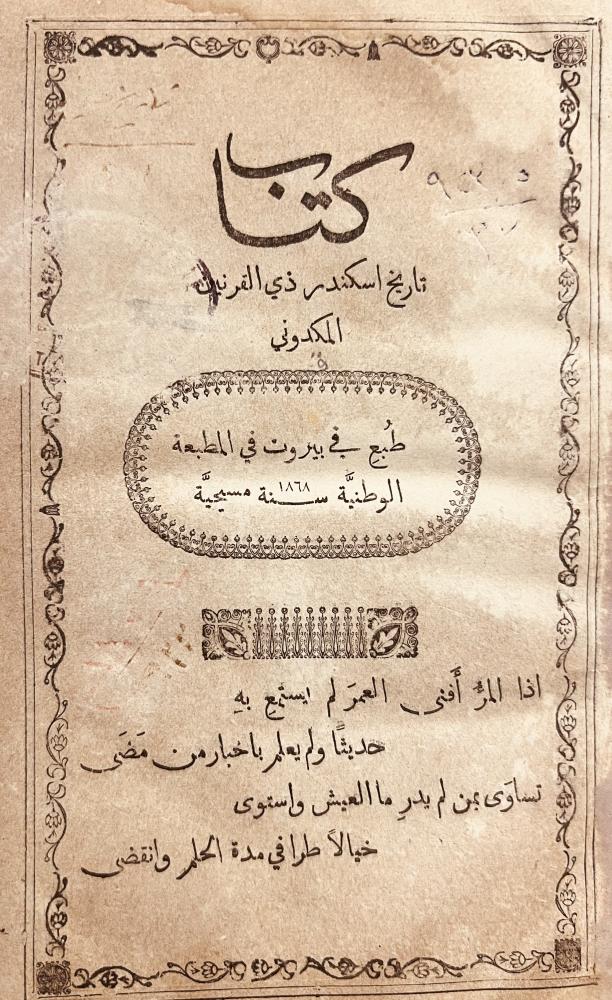 كتاب
تاريخ اسكندر ذي القرنين
المكدوني
طُبع في بيروت في المطبعة
الوطنيَّة سنة ١٨٦٨ مسيحيَّة
اذا المرُّ أَفنى العمرَ لم يستمع بهِ
حديثًا ولم يعلم باخبار من مَضَى
تساوَى بمن لم يدرِ ما العيش واستوى
خيالاً طرا في مدة الحلم وانقضى